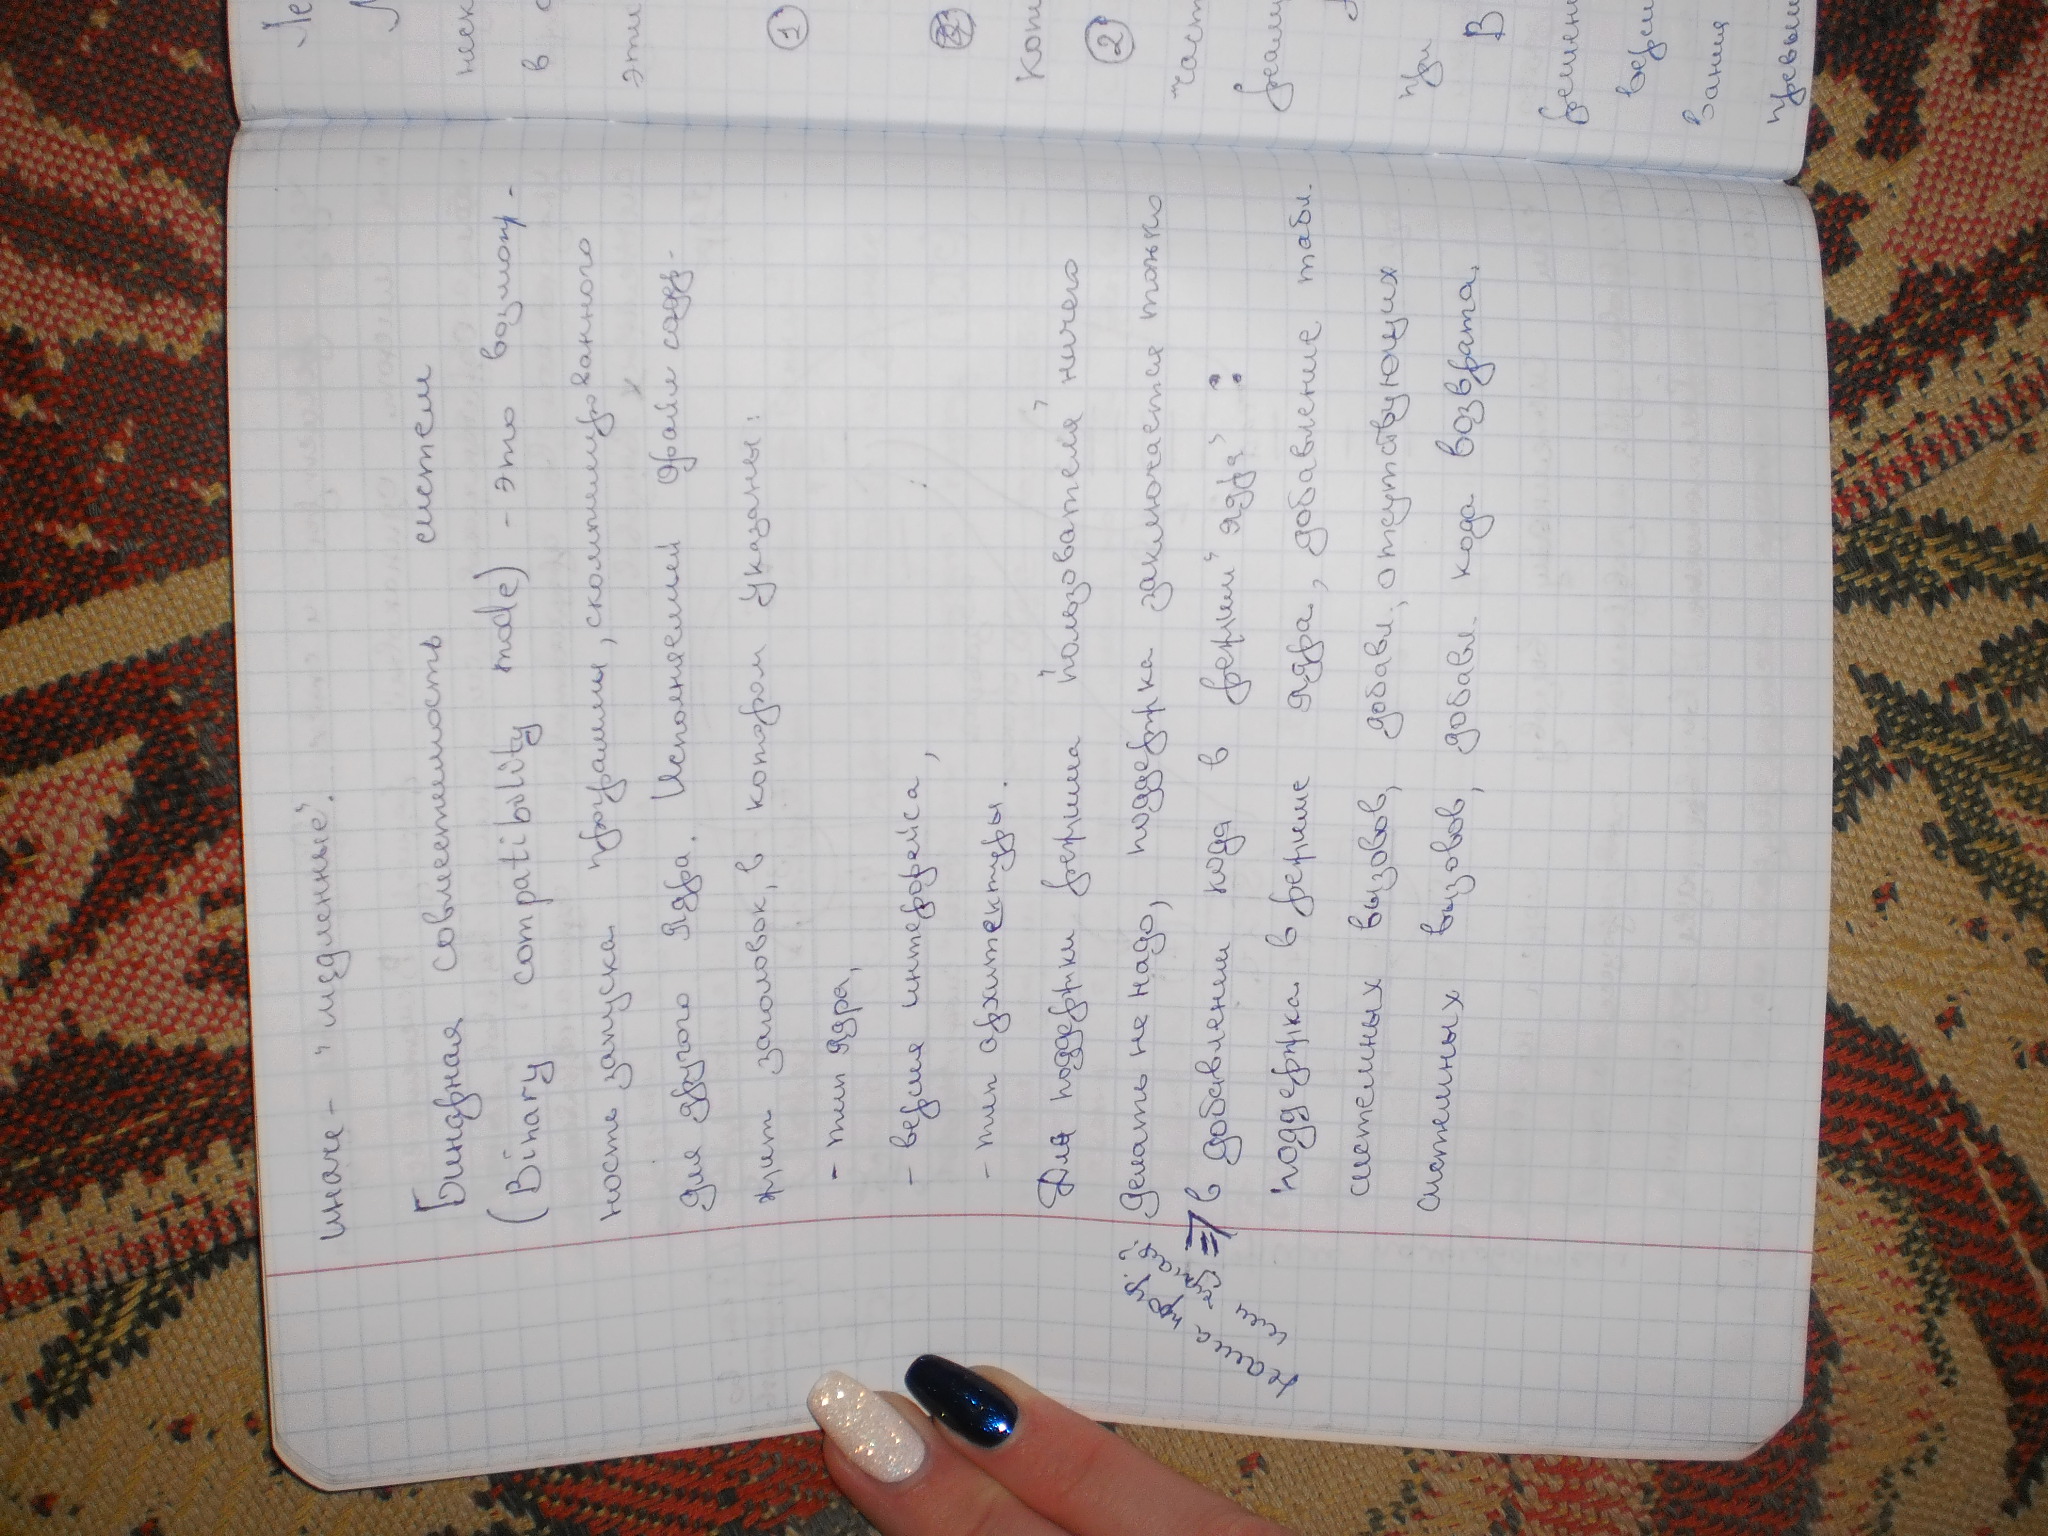 иначе - "медленные".
Бинарная совместимость систем
(Binary compatibility mode) - это возмож-
ность запуска программ, скомпилированного
для другого ядра. Исполняемый файл содер-
жит заголовок, в котором указаны:
- тип ядра,
- версия интерфейса,
- тип архитектуры.
Для поддержки режима "пользователя" ничего
делать не надо, поддержка заключается только
⇒ в добавлении кода в "режим" ядра":
поддержка в режиме ядра, добавление табл.
системных вызовов, добавл. отсутствующих
системных вызовов, добавл. кода возврата.
Ле
неск
в
эти
1
Кот
2
част
реали
При
В
времен
верси
вания
превыш